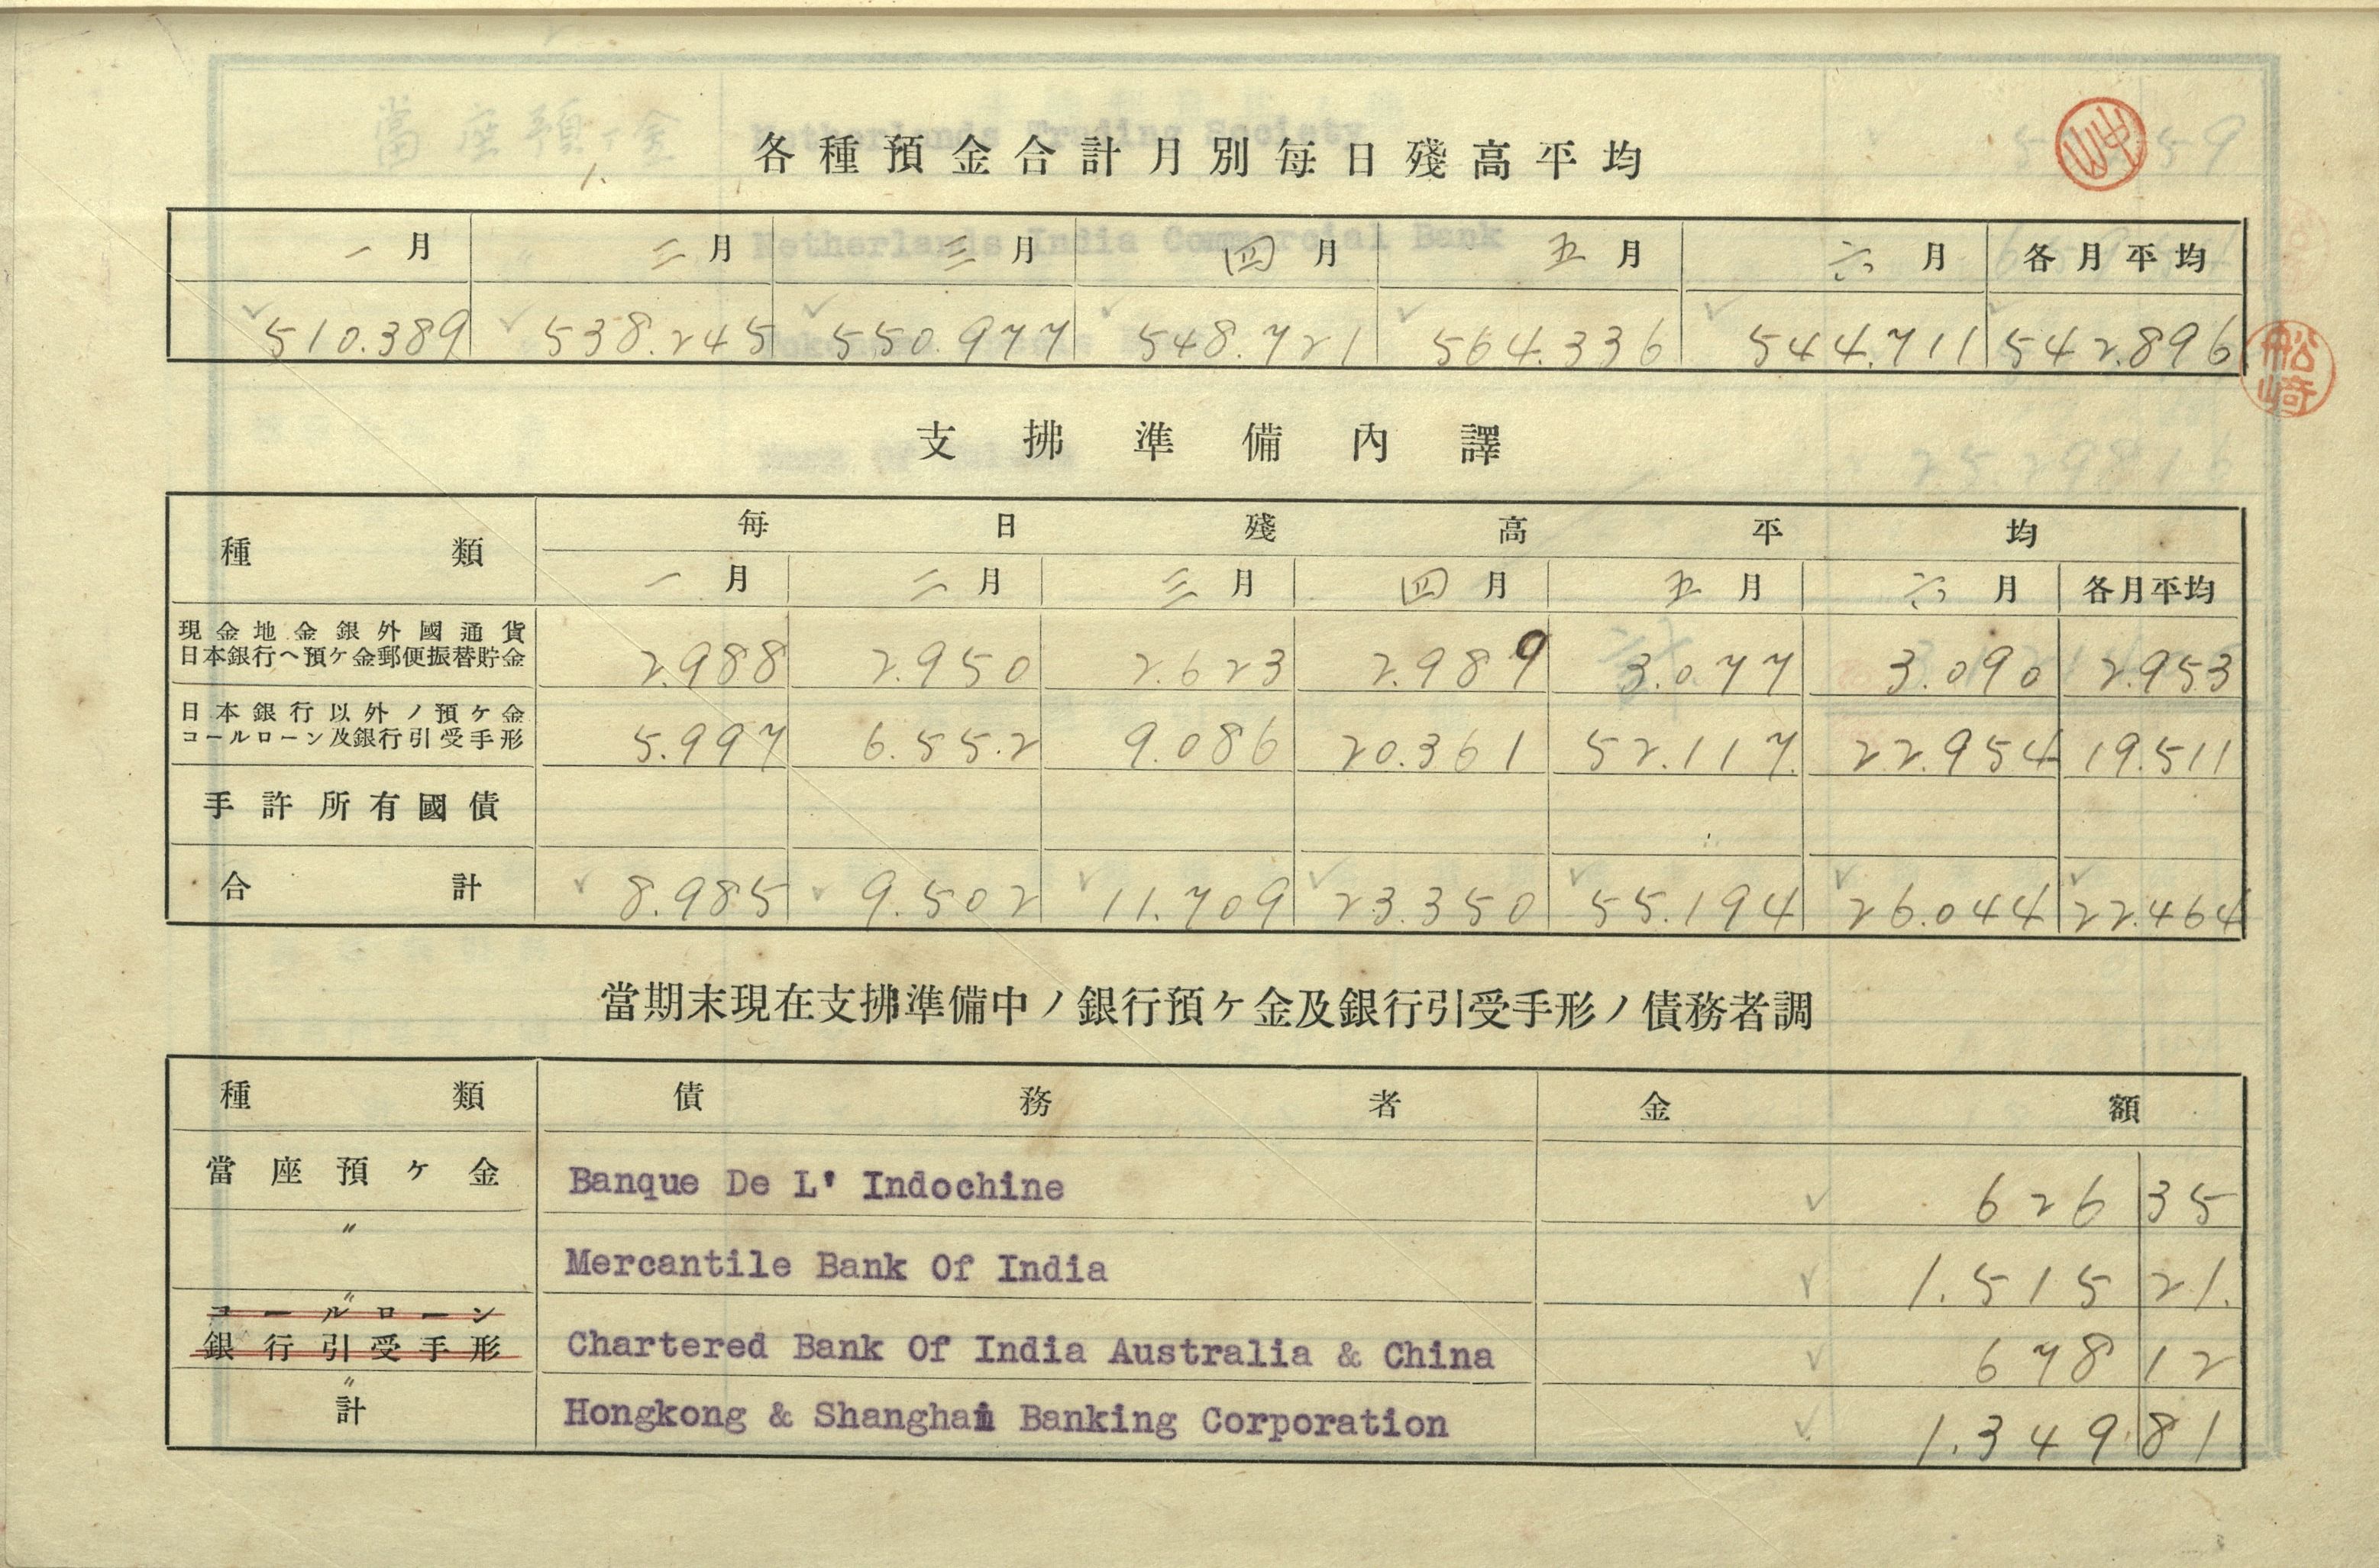 各種預金合計月別每日殘高平均
一月 二月 三月 四月 五月 六月 各月平均
510.389 538.245 550.977 548.721 564.336 544.711 542.896
船崎
支拂準備內譯
種類 每日殘高平均
一月 二月 三月 四月 五月 六月 各月平均
現金地金銀外國通貨
日本銀行ヘ預ケ金郵便振替貯金 2.988 2.950 2.623 2.989 3.077 3.090 2.953
日本銀行以外ノ預ケ金
コールローン及銀行引受手形 5.997 6.552 9.086 20.361 52.117 22.954 19.511
手許所有國債
合計 8.985 9.502 11.709 23.350 55.194 26.044 22.464
當期末現在支拂準備中ノ銀行預ケ金及銀行引受手形ノ債務者調
種類 債務者 金額
當座預ケ金 Banque De L' Indochine 626 35
〃 Mercantile Bank Of India 1.515 21.
〃
コールローン
銀行引受手形 Chartered Bank Of India Australia & China 678 12
〃
計 Hongkong & Shanghai Banking Corporation 1.349 81